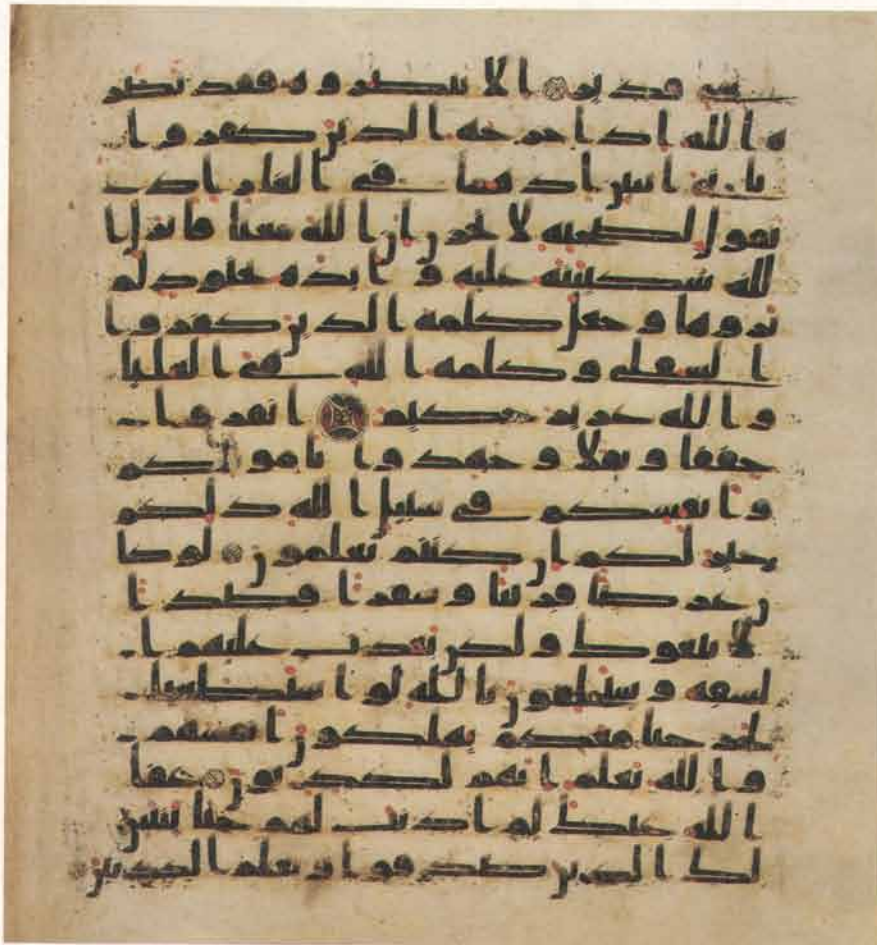 شيء قدير الا تنصروه فقد نصر
ه الله اذ اخرجه الذين كفروا
ثاني اثنين اذ هما في الغار اذ
يقول لصحبه لا تحزن ان الله معنا فانزل ا
لله سكينته عليه و ايده بجنود لم
تروها و جعل كلمة الذين كفروا
السفلى و كلمة الله هي العليا
و الله عزيز حكيم انفروا
خففا و ثقلا و جهدوا باموالكم
و انفسكم في سبيل الله ذلكم
خير لكم ان كنتم تعلمون لو كا
ن عرضا قريبا و سفرا قصدا
لاتبعوك و لكن بعدت عليهم ا
لشقة و سيحلفون بالله لو استطعنا
لخرجنا معكم يهلكون انفسهم
و الله يعلم انهم لكذبون عفا
الله عنك لم اذنت لهم حتى يتبين
لك الذين صدقوا و تعلم الكذبين